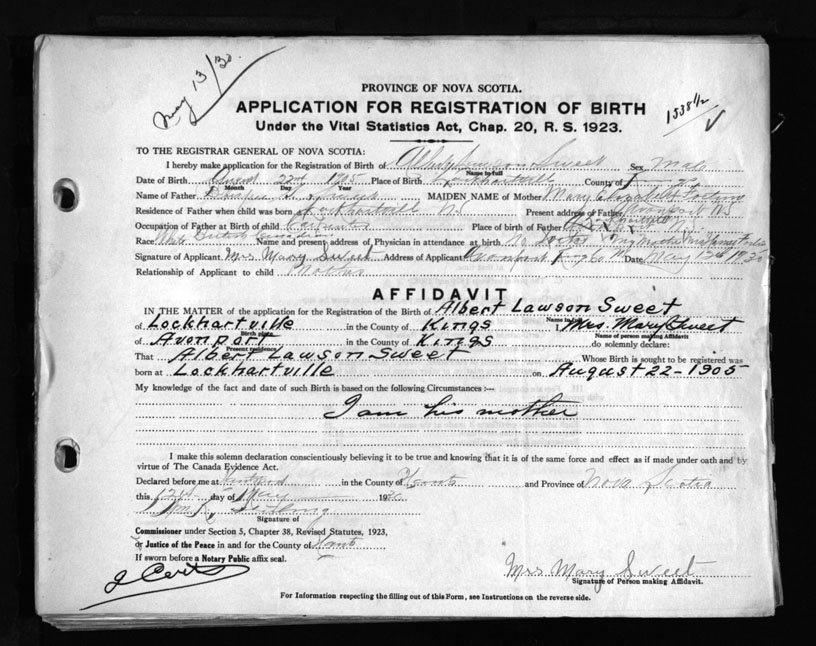 May 13/30
PROVINCE OF NOVA SCOTIA.
APPLICATION FOR REGISTRATION OF BIRTH
Under the Vital Statistics Act, Chap. 20, R. S. 1923.
1538 1/2
TO THE REGISTRAR GENERAL OF NOVA SCOTIA:
I hereby make application for the Registration of Birth of Lawson Sweet Sex Male
Name in full
Date of Birth August 22nd 1905 Place of Birth Lockhartville County of
Month Day Year
Name of Father MAIDEN NAME of Mother Mary Elizabeth
Residence of Father when child was born at Lockhartville N.S Present address of Father Avonport NS
Occupation of Father at Birth of Child Place of Birth of Father
Race White British Canadian Name and present address of Physician in attendance at birth. No Doctor
Signature of Applicant. Mrs. Mary Sweet Address of Applicant Avonport Date May 12th 1930
Relationship of Applicant to child Mother
AFFIDAVIT
IN THE MATTER of the application for the Registration of the Birth of Albert Lawson Sweet
Name in full
of Lockhartville in the County of Kings I, Mrs. Mary Sweet
Birth place Name of person making Affidavit
of Avonport in the County of Kings do solemnly declare:
Present residence
That Albert Lawson Sweet Whose Birth is sought to be registered was
born at Lockhartville on August 22-1905
My knowledge of the fact and date of such Birth is based on the following Circumstances :—
I am his mother
I make this solemn declaration conscientiously believing it to be true and knowing that it is of the same force and effect as if made under oath and by
virtue of The Canada Evidence Act.
Declared before me at in the County of Hants and Province of Nova Scotia
this 12th day of May 1930
Signature of
Commissioner under Section 5, Chapter 38, Revised Statutes, 1923,
or Justice of the Peace in and for the County of Hants
If sworn before a Notary Public affix seal.
Mrs Mary Sweet
Signature of Person making Affidavit.
For Information respecting the filling out of this Form, see Instructions on the reverse side.